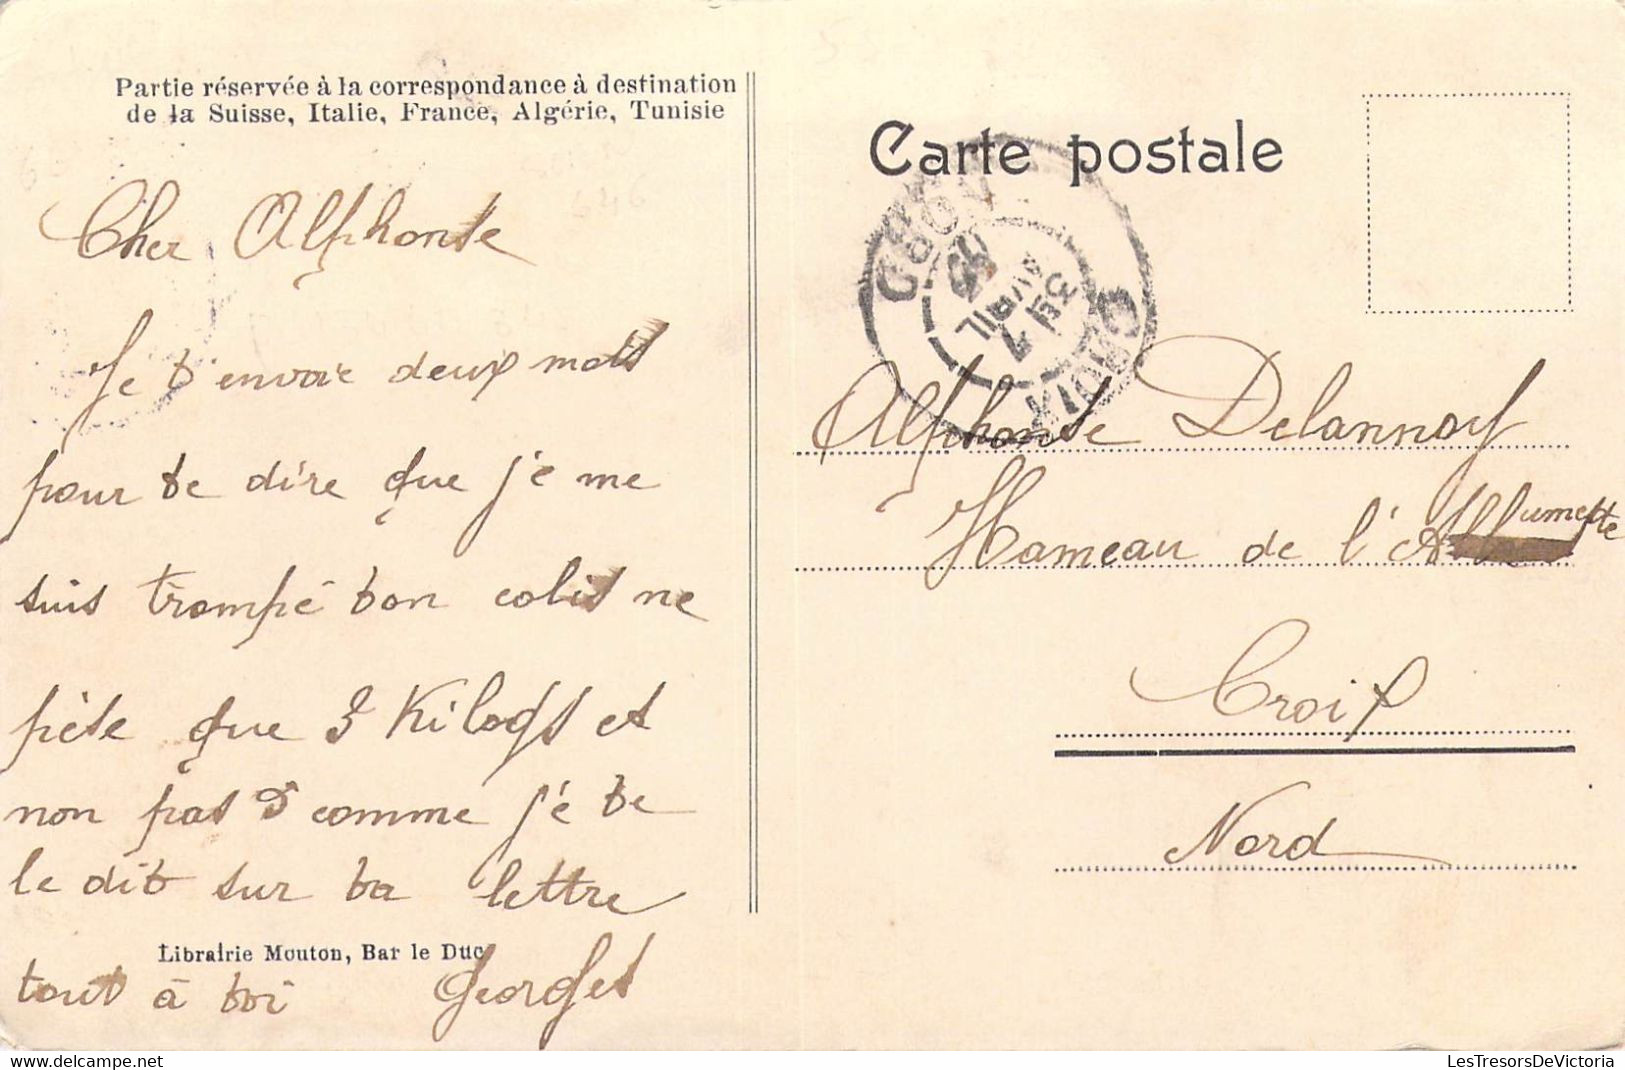 Partie réservée à la correspondance à destination
de la Suisse, Italie, France, Algérie, Tunisie
Cher Alphonse
Je t'envoie deux mots
pour te dire que je me
suis trompé ton colis ne
pèse que 3 Kilogs et
non pas 5 comme j'é te
le dit sur ta lettre
tout à toi Georges
Librairie Mouton, Bar le Duc
Carte postale
CROIX
NORD
AVRIL
Alphonse Delannoy
Hameau de l'Allumette
Croix
Nord
LesTresorsDeVictoria